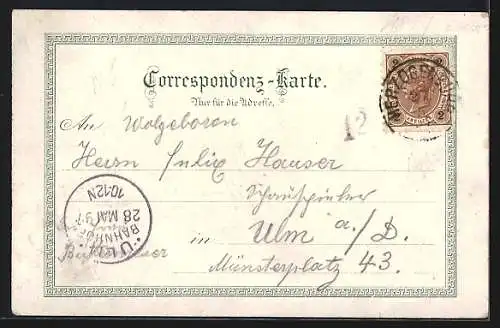 Correspondenz-Karte.
Nur für die Adresse.
An Wolgeboren
Herrn Julix Hauser
Schauspieler
in Ulm a/D.
Münsterplatz 43.
12
2 2
HERZOGEN
ULM
BAHNHOF
28 MAI 97
10-12N